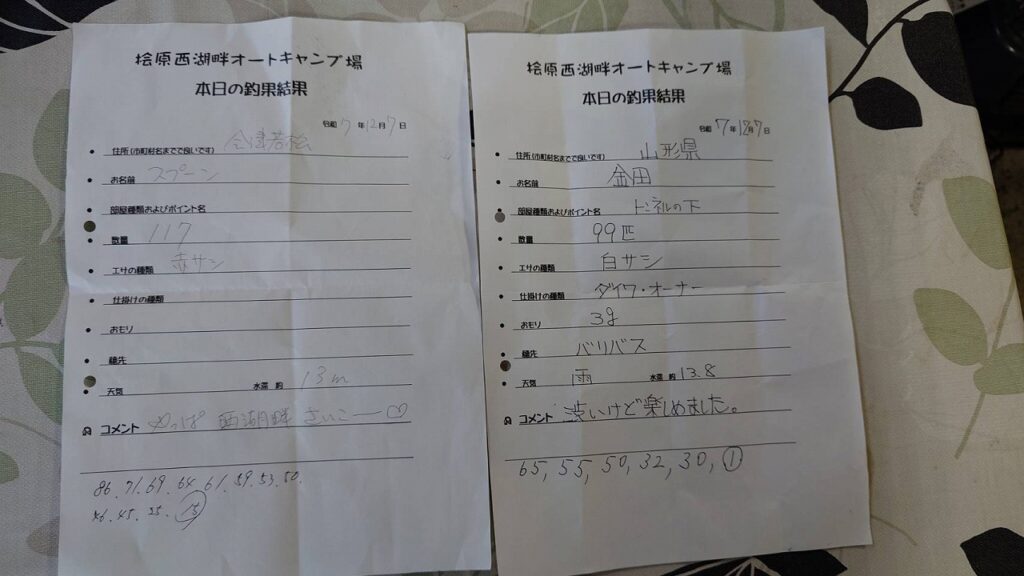 桧原西湖畔オートキャンプ場
本日の釣果結果
令和 7 年 12月 7 日
• 住所(市町村名までで良いです) 会津若松
• お名前 スプーン
• 部屋種類およびポイント名
• 数量 117
• エサの種類 赤サシ
• 仕掛けの種類
• おもり
• 穂先
• 天気 水深 約 13m
コメント やっぱ 西湖畔 さいこー♡
86.71.69.64.61.59.53.50.
46.45.25.
桧原西湖畔オートキャンプ場
本日の釣果結果
令和 7 年 12月 7日
• 住所(市町村名までで良いです) 山形県
• お名前 金田
• 部屋種類およびポイント名 トンネルの下
• 数量 99匹
• エサの種類 白サシ
• 仕掛けの種類 ダイワ・オーナー
• おもり 3g
• 穂先 バリバス
• 天気 雨 水深 約 13.8
コメント 渋いけど楽しめました。
65, 55, 50, 32, 30, ①